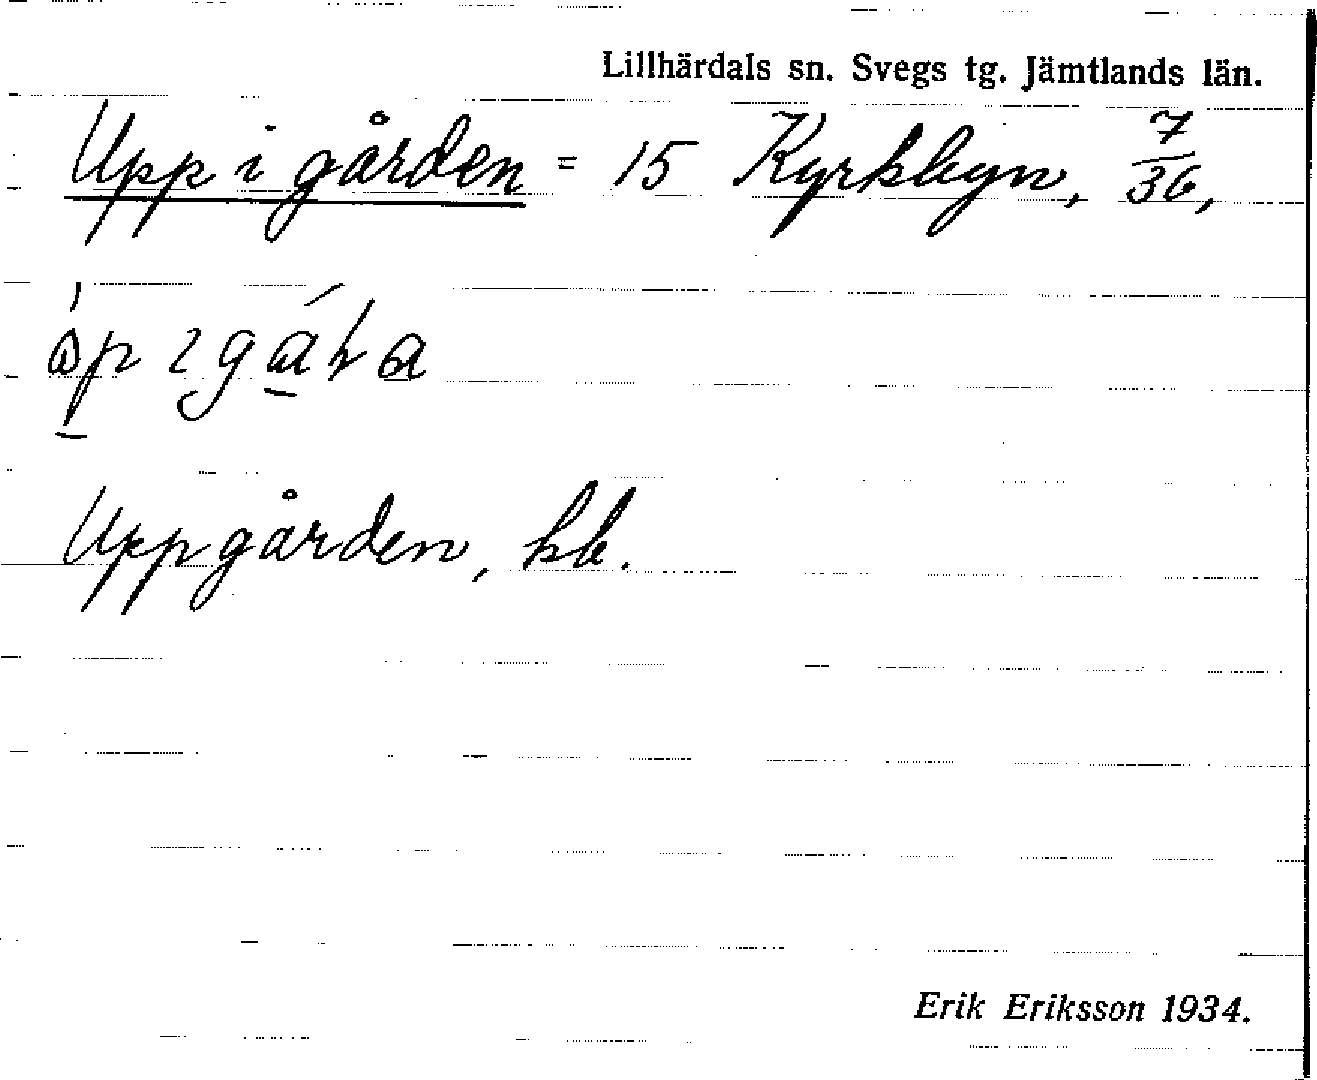 Lillhärdals sn. Svegs tg. Jämtlands län.
Upp i gården = 15 Kyrkbyn, 7/36,
Uppgården, kb.
Erik Eriksson 1934.